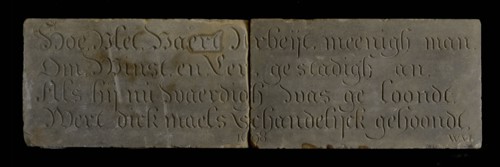 Hoe Wel Waert Arbeijt meenigh man
Om Winst en Lev gestadigh an
Als hij nu waerdigh was geloondt
Wert dickmaels schandelijck gehoondt